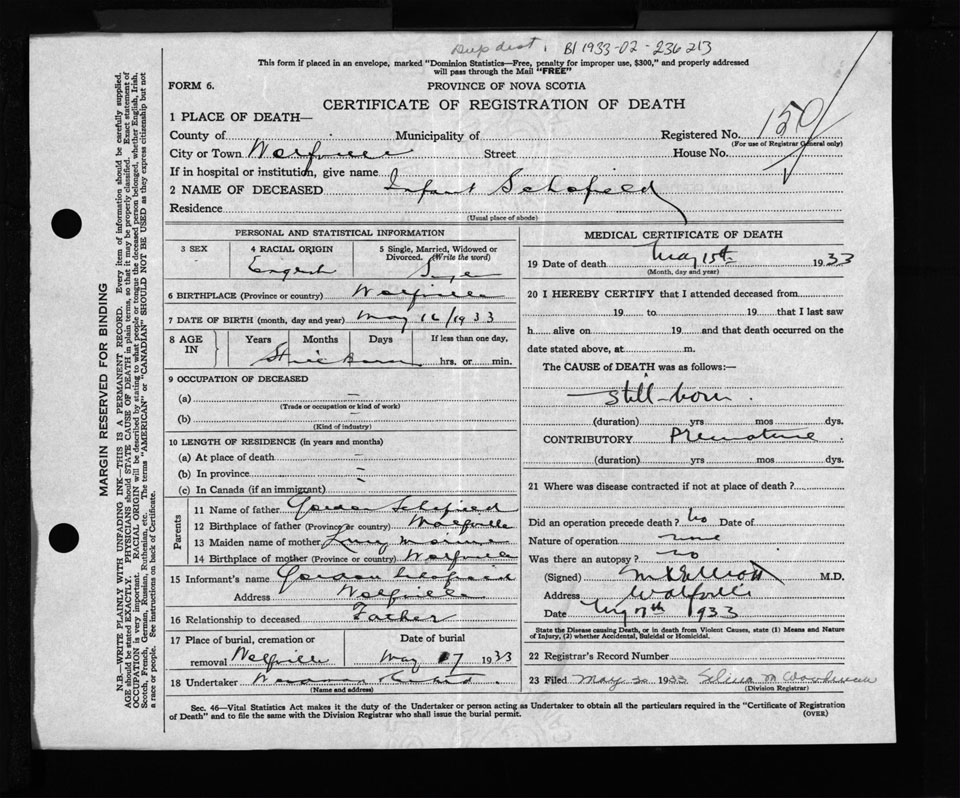 Dup dist. B1 1933-02-236213
This form if placed in an envelope, marked "Dominion Statistics—Free, penalty for improper use, $300," and properly addressed
will pass through the Mail "FREE"
FORM 6.
PROVINCE OF NOVA SCOTIA
CERTIFICATE OF REGISTRATION OF DEATH
MARGIN RESERVED FOR BINDING
N.B.—WRITE PLAINLY WITH UNFADING INK—THIS IS A PERMANENT RECORD. Every item of information should be carefully supplied.
AGE should be stated EXACTLY. PHYSICIANS should STATE CAUSE OF DEATH in plain terms, so that it may be properly classified. Exact statement of
OCCUPATION is very important. RACIAL ORIGIN will be described by stating to what people or tongue the deceased person belonged, whether English, Irish,
Scotch, French, German, Russian, Ruthenian, etc. The terms "AMERICAN" or "CANADIAN" SHOULD NOT BE USED as they express citizenship but not
a race or people. See instructions on back of Certificate.
1 PLACE OF DEATH—
County of Municipality of Registered No. 150
(For use of Registrar General only)
City or Town Wolfville Street House No.
If in hospital or institution, give name
2 NAME OF DECEASED Infant Schofield
Residence
(Usual place of abode)
PERSONAL AND STATISTICAL INFORMATION
3 SEX
4 RACIAL ORIGIN
English
5 Single, Married, Widowed or
Divorced. (Write the word)
Single
6 BIRTHPLACE (Province or country) Wolfville
7 DATE OF BIRTH (month, day and year) May 16/1933
8 AGE IN
Years Months Days If less than one day,
Still Born hrs. or min.
9 OCCUPATION OF DECEASED
(a) —
(Trade or occupation or kind of work)
(b) —
(Kind of industry)
10 LENGTH OF RESIDENCE (in years and months)
(a) At place of death —
(b) In province —
(c) In Canada (if an immigrant) —
Parents
11 Name of father Gordon Schofield
12 Birthplace of father (Province or country) Wolfville
13 Maiden name of mother
14 Birthplace of mother (Province or country) Wolfville
15 Informant's name Gordon Schofield
Address Wolfville
16 Relationship to deceased Father
17 Place of burial, cremation or
removal Wolfville
Date of burial
May 17 1933
18 Undertaker
(Name and address)
MEDICAL CERTIFICATE OF DEATH
19 Date of death May 15th 1933
(Month, day and year)
20 I HEREBY CERTIFY that I attended deceased from
19 to 19 that I last saw
h alive on 19 and that death occurred on the
date stated above, at m.
The CAUSE of DEATH was as follows:—
Still-born.
(duration) yrs mos dys.
CONTRIBUTORY Premature.
(duration) yrs mos dys.
21 Where was disease contracted if not at place of death?
Did an operation precede death? No Date of
Nature of operation none
Was there an autopsy? no
(Signed) M.R. Elliott M.D.
Address Wolfville
Date May 17th 1933
State the Disease causing Death, or in death from Violent Causes, state (1) Means and Nature
of Injury, (2) whether Accidental, Suicidal or Homicidal.
22 Registrar's Record Number
23 Filed May 30 1933 M
(Division Registrar)
Sec. 46—Vital Statistics Act makes it the duty of the Undertaker or person acting as Undertaker to obtain all the particulars required in the "Certificate of Registration
of Death" and to file the same with the Division Registrar who shall issue the burial permit.
(OVER)